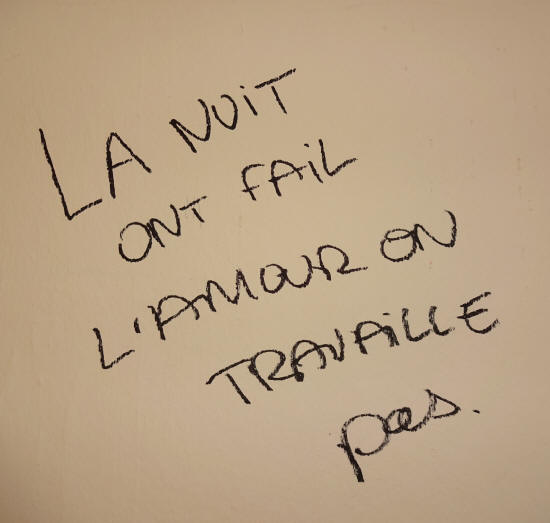 LA NUIT
ONT FAIL
L'AMOUR ON
TRAVAILLE
pas.